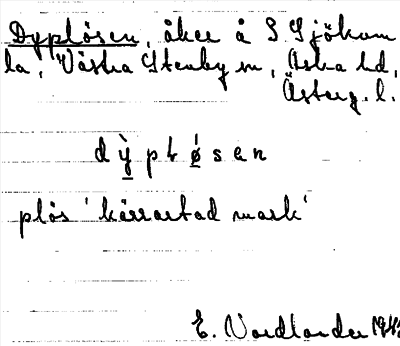 Dyplösen, åker å S Sjökum
la, Västra Stenby sn, Aska hd,
Österg. l.
dỳpłøsen
plös 'kärrartad mark'
E. Nordlander